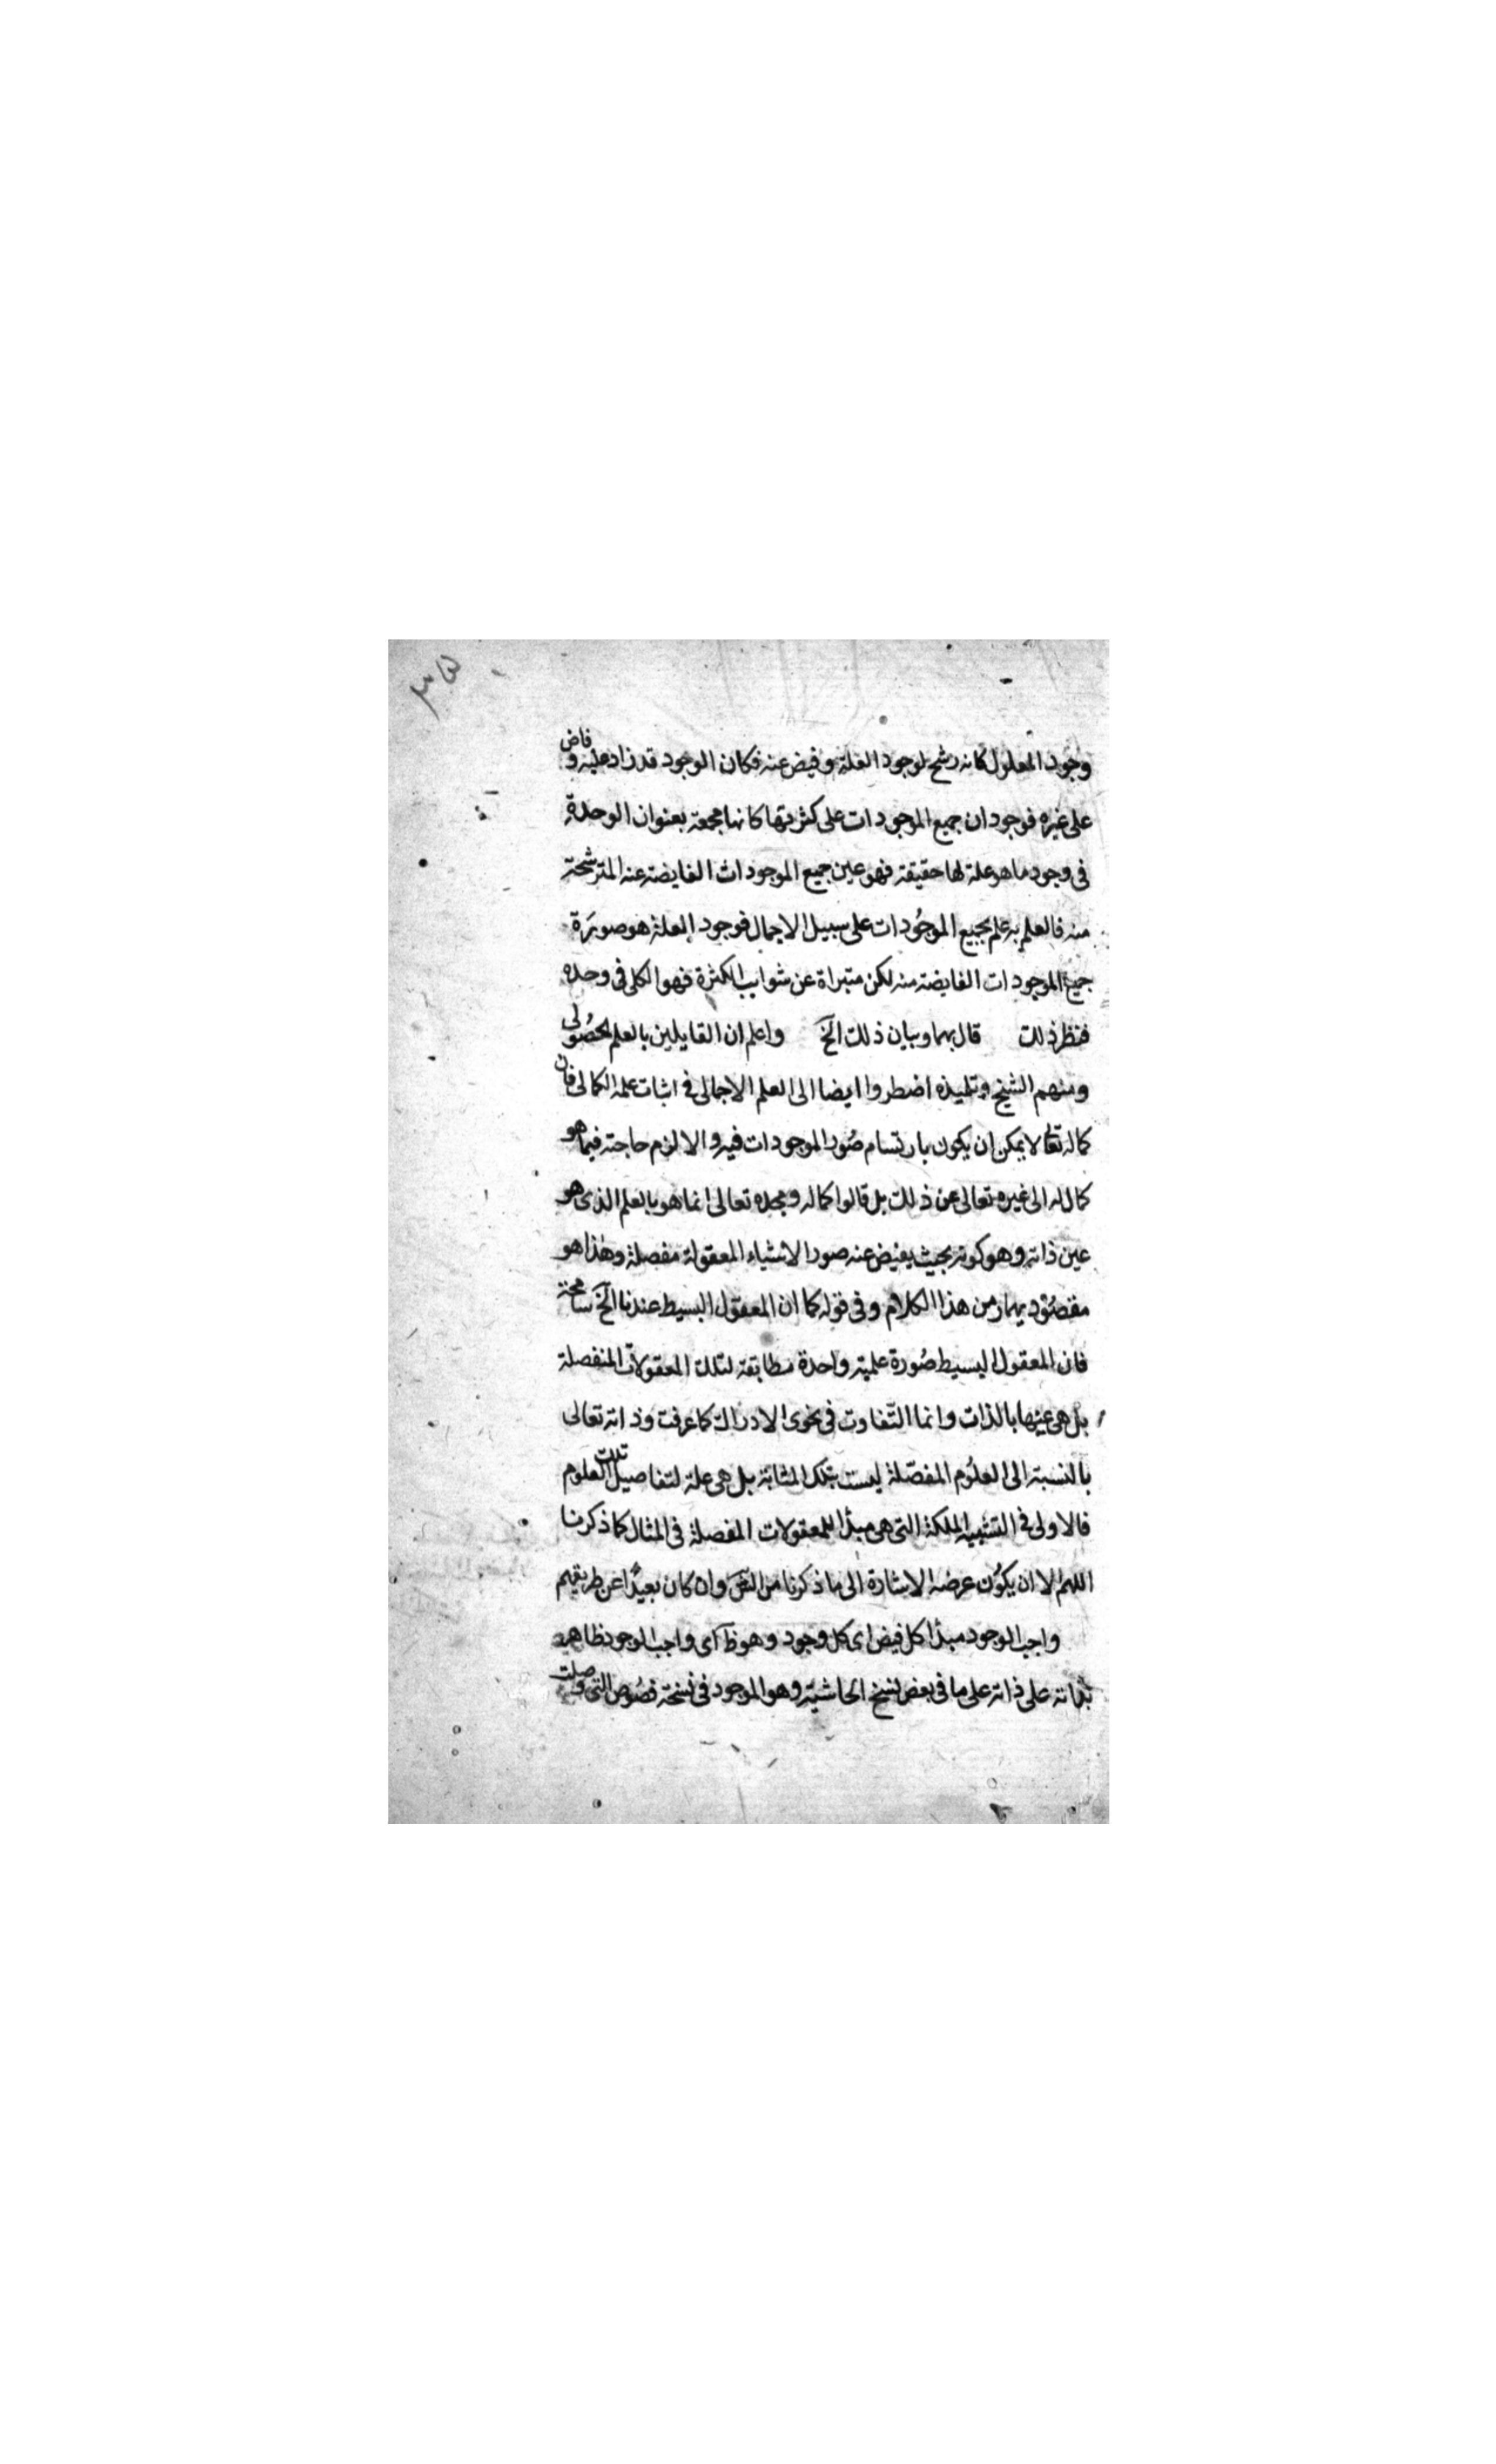 وجود المعلول كانه رشح لوجود العلة وفيض عنه فكان الوجود قد زاد عليه و فاض
على غيره فوجود ان جميع الموجودات على كثرتها كانها مجمعة بعنوان الوحدة
فى وجود ما هو علة لها حقيقة فهو عين جميع الموجودات الفايضة عنه المترشحة
منه فالعلم به علم بجميع الموجودات على سبيل الاجمال فوجود العلة هو صورة
جميع الموجودات الفايضة منه لكن متبراة عن شوايب الكثرة فهو الكل فى وحده
فنظر ذلك قال بهما وبيان ذلك الخ واعلم ان القايلين بالعلم الحصولى
ومنهم الشيخ وتلميذه اضطروا ايضا الى العلم الاجمالى فى اثبات علمه الكمالى فان
كماله تعالى لا يمكن ان يكون بارتسام صور الموجودات فيه والا لزم حاجته فيما هو
كمال له الى غيره تعالى عن ذلك بل قالوا كماله ومجده تعالى انما هو بالعلم الذى هو
عين ذاته وهو كونه بحيث يفيض عنه صور الاشياء المعقولة مفصلة وهذا هو
مقصود بهمار من هذا الكلام وفى قوله كما ان المعقول البسيط عندنا الخ سامحة
فان المعقول البسيط صورة علمية واحدة مطابقة لتلك المعقولات المنفصلة
بل هى عينها بالذات وانما التفاوت فى نحوى الادراك كما عرفت وذاته تعالى
بالنسبة الى العلوم المفصلة ليست بتلك المثابة بل هى علة لتفاصيل تلك العلوم
فالاولى فى التشبيه الملكة التى هى مبدا للمعقولات المفصلة فى المثال كما ذكرنا
اللهم الا ان يكون غرضه الاشارة الى ما ذكرنا من النفس وان كان بعيدا عن طريقهم
واجب الوجود مبدا كل فيض اى كل وجود وهو ظ اى واجب الوجود ظاهر
بذاته على ذاته على ما فى بعض نسخ الحاشية وهو الموجود فى نسخة فصوص التى وصلت